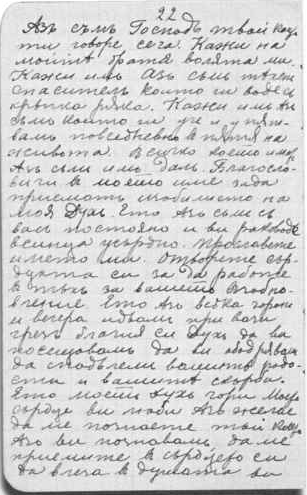 22
Азъ съмъ Господь твой кой
ти говоре сега. Кажи на
моитѣ братя волята ми.
Кажи имъ Азъ съмъ тѣхни
спаситель които ги води с
крѣпка ряка. Кажи имъ Аз
съмъ които ги уче и упѫт-
вамъ повседневно въ пѫтя на
живота. Всичко което имат
Азъ съмъ имъ далъ. Благосло-
вяи ги в моето име за да
приематъ изобилието на
моя Духъ. Ето Азъ съмъ съ
васъ постояно и ви раководе
всинца усърдно. Прославете
името ми. отворете сър-
дцата си за да работе
в тѣхъ за вашето възоб-
вление Ето Азъ всѣка сутрин
и вечерь идвамъ при вази
чрезъ благия си Духъ да ва
посещавамъ да ви ободрявам
да споделямъ вашитѣ радо-
сти и вашитѣ скърби.
Ето моетъ Духъ гори Мое
сърдце ви люби Азъ желае
да ме познаете тъй както
Азъ ви познавамъ да ме
приемите в сърдцето си
да влеза в душата ви